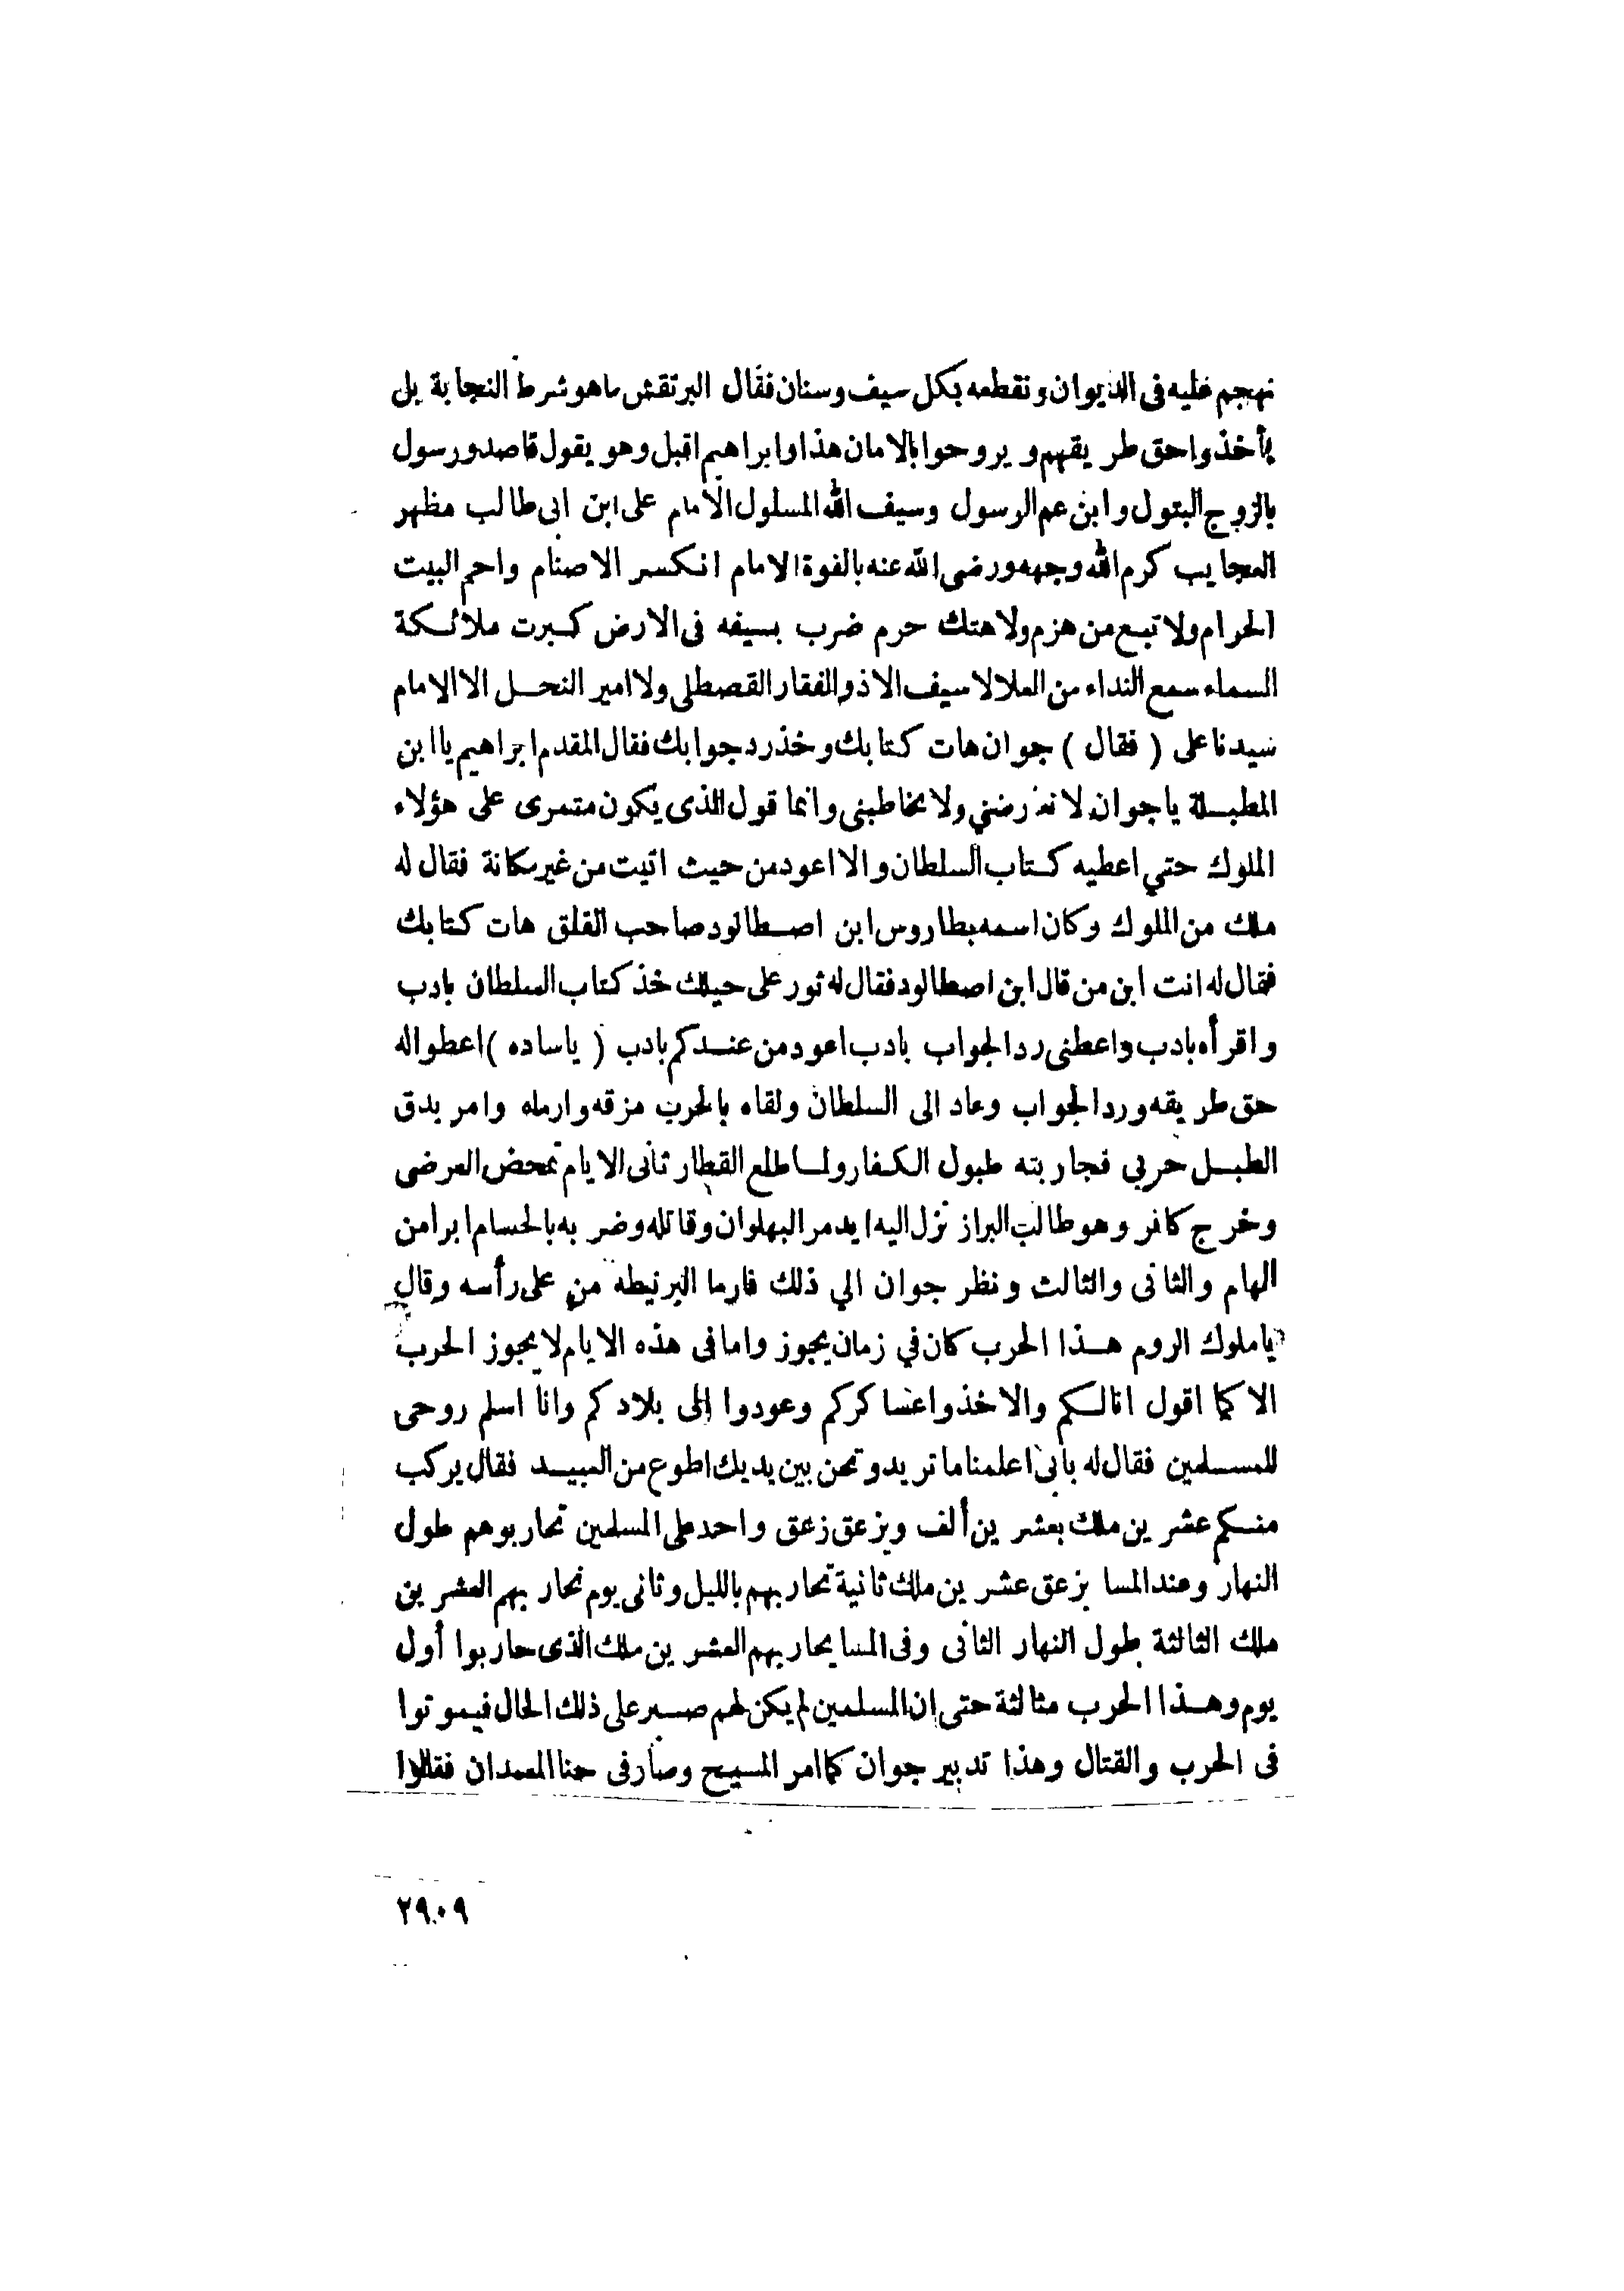 نهجم عليه فى الديوان ونقطعه بكل سيف وسنان فقال البرتقش ما هو شرط النجابة بل
يأخذوا حق طريقهم ويروحوا بالامان هذا وابراهيم اقبل وهو يقول قاصد ورسول
بالزوج البتول وابن عم الرسول وسيف الله المسلول الامام على ابن ابى طالب مظهر
العجايب كرم الله وجهه ورضى الله عنه بالقوة الامام انكسر الاصنام واحم البيت
الحرام ولا تبع من هزم ولا هتك حرم ضرب بسيفه فى الارض كبرت ملائكة
السماء سمع النداء من العلا لا سيف الا ذو الفقار القصطلى ولا امير النحل الا الامام
سيدنا على ( فقال ) جوان هات كتابك وخذ رد جوابك فقال المقدم ابراهيم يا ابن
المطبلة يا جوان لا تعارضني ولا تخاطبنى وانما قول الذى يكون متمرى على هؤلاء
الملوك حتي اعطيه كتاب السلطان والا اعود من حيث اتيت من غير مكانة فقال له
ملك من الملوك وكان اسمه بطاروس ابن اصطالود صاحب القلق هات كتابك
فقال له انت ابن من قال ابن اصطالود فقال له ثور على حيلك خذ كتاب السلطان بادب
واقرأه بادب واعطنى رد الجواب بادب اعود من عندكم بادب ( ياساده ) اعطوا له
حق طريقه ورد الجواب وعاد الى السلطان ولقاه بالحرب مزقه وارماه وامر بدق
الطبل حربى فجاربته طبول الكفار ولما طلع القطار ثانى الايام تمحض العرضى
وخرج كافر وهو طالب البراز نزل اليه ايدمر البهلوان وقاتله وضربه بالحسام ابرا من
الهام والثانى والثالث ونظر جوان الي ذلك فارما البرنيطه من على رأسه وقال
يا ملوك الروم هذا الحرب كان في زمان يجوز واما فى هذه الايام لا يجوز الحرب
الا كما اقول انا لكم والا خذوا عساكركم وعودوا إلى بلادكم وانا اسلم روحى
للمسلمين فقال له يا أبى اعلمنا ما تريد ونحن بين يديك اطوع من العبيد فقال يركب
منكم عشرين ملك بعشرين ألف ويزعق زعق واحد على المسلمين تحاربوهم طول
النهار وعند المسا يزعق عشرين ملك ثانية تحاربهم بالليل وثانى يوم تحاربهم العشرين
ملك الثالثة طول النهار الثانى وفى المسا يحاربهم العشرين ملك الذى حاربوا أول
يوم وهذا الحرب مثالثة حتى إن المسلمين لم يكن لهم صبر على ذلك الحال فيموتوا
فى الحرب والقتال وهذا تدبير جوان كما امر المسيح وصار فى حنا المعمدان فقالوا
٢٩٠٩